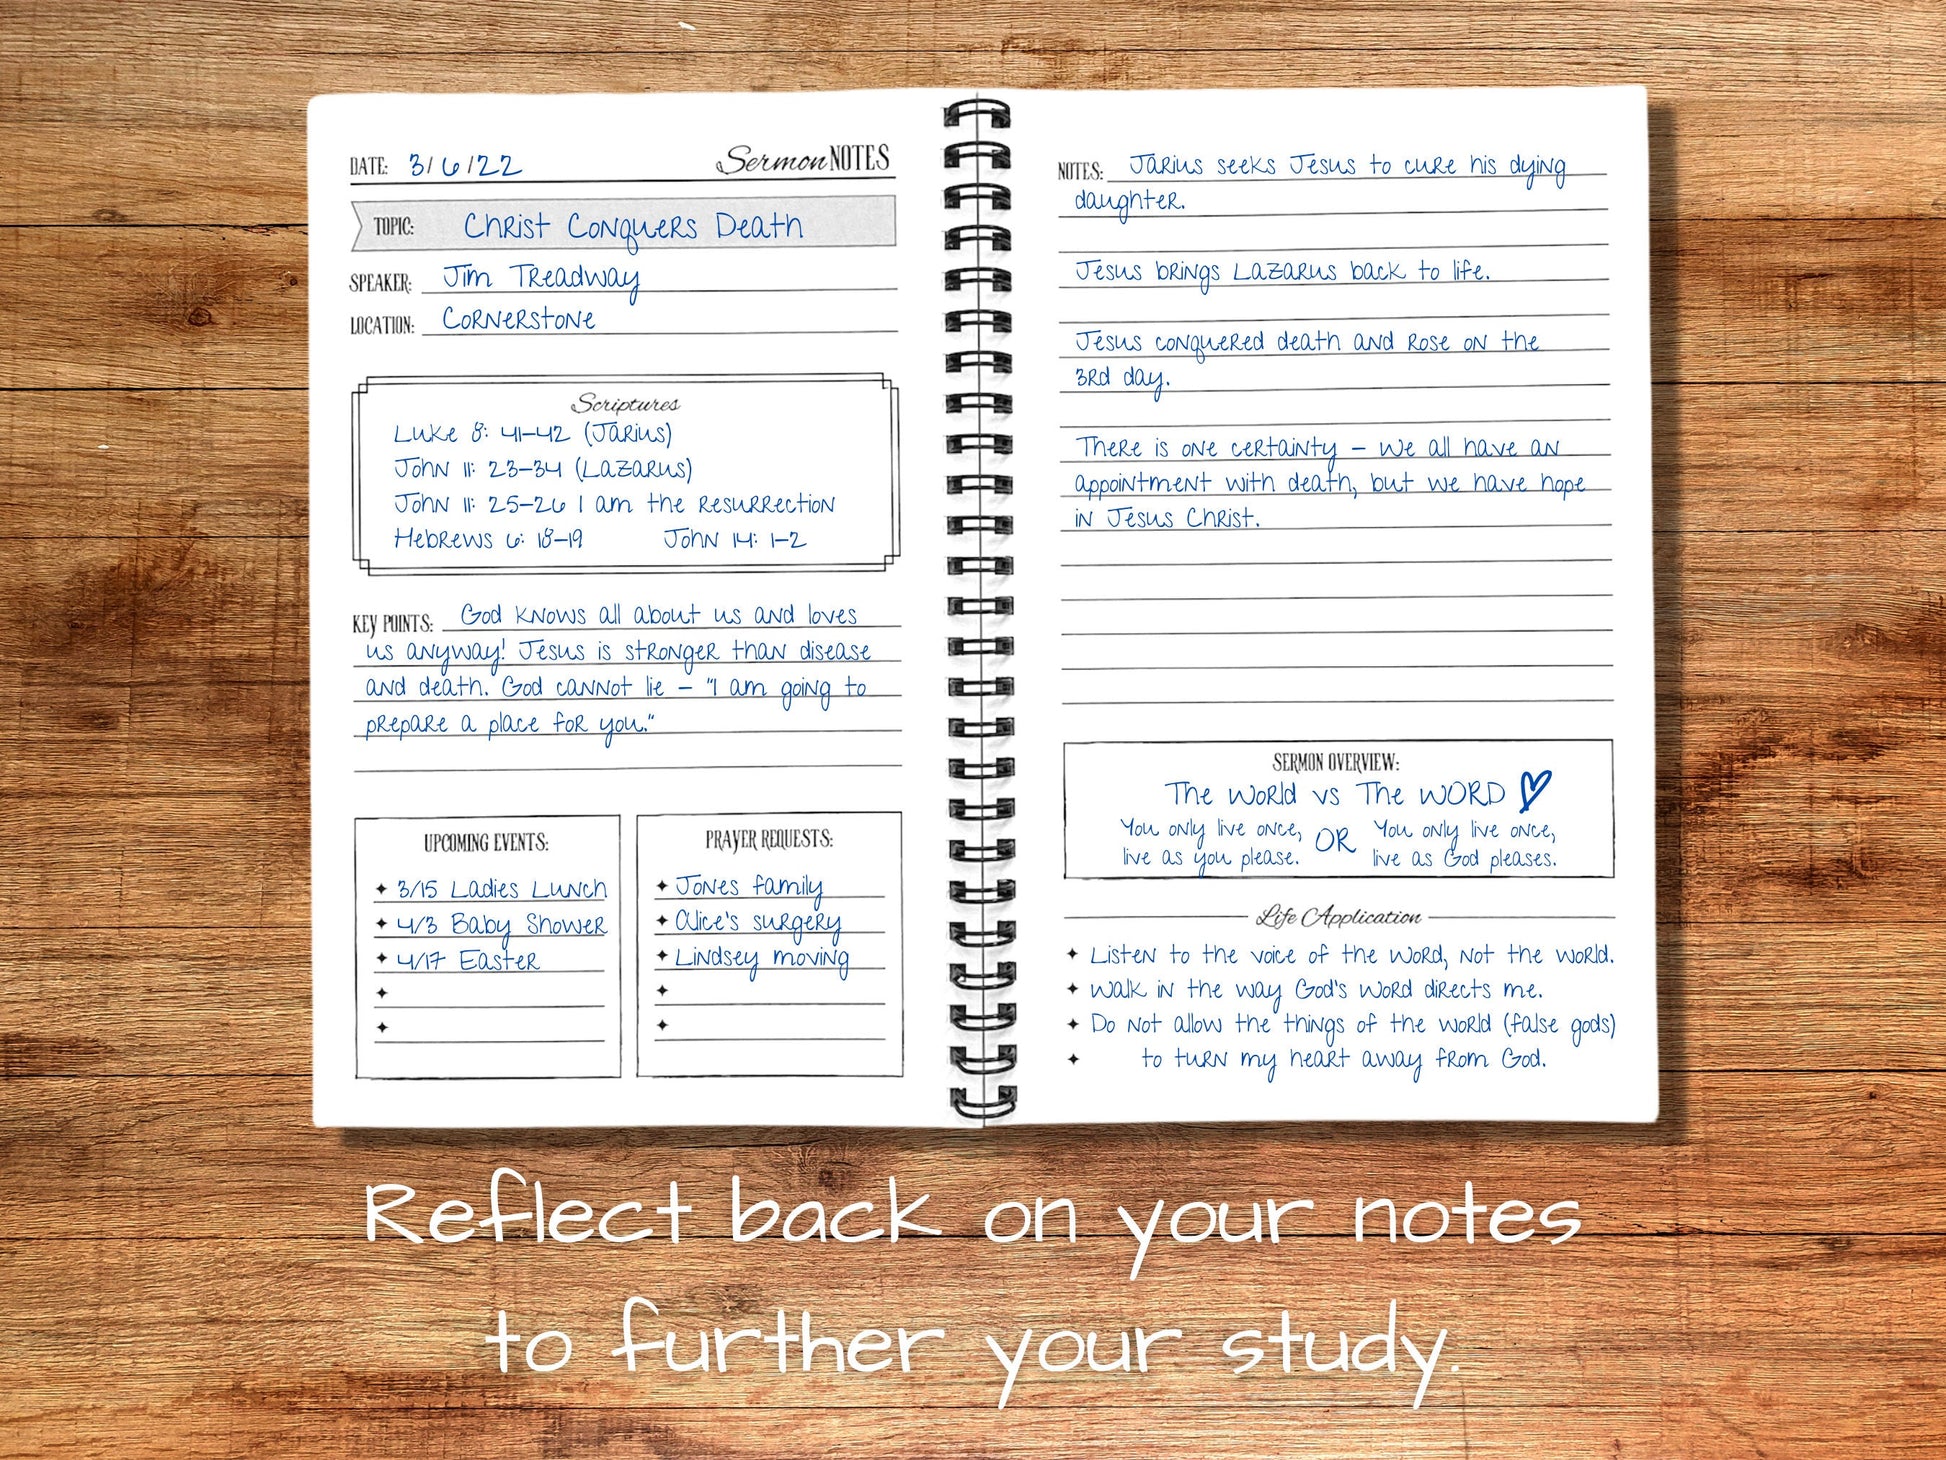 DATE: 3/6/22 Sermon NOTES
TOPIC: Christ Conquers Death
SPEAKER: Jim Treadway
LOCATION: Cornerstone
Scriptures
Luke 8: 41-42 (Jarius)
John 11: 23-34 (Lazarus)
John 11: 25-26 I am the resurrection
Hebrews 6: 18-19 John 14: 1-2
KEY POINTS: God knows all about us and loves
us anyway! Jesus is stronger than disease
and death. God cannot lie – "I am going to
prepare a place for you."
UPCOMING EVENTS:
3/15 Ladies Lunch
4/3 Baby Shower
4/17 Easter
PRAYER REQUESTS:
Jones family
Alice's surgery
Lindsey moving
NOTES: Jarius seeks Jesus to cure his dying
daughter.
Jesus brings Lazarus back to life.
Jesus conquered death and rose on the
3rd day.
There is one certainty – we all have an
appointment with death, but we have hope
in Jesus Christ.
SERMON OVERVIEW:
The World vs The WORD
You only live once, OR You only live once,
live as you please. live as God pleases.
Life Application
Listen to the voice of the Word, not the world.
Walk in the way God's Word directs me.
Do not allow the things of the world (false gods)
to turn my heart away from God.
Reflect back on your notes
to further your study.